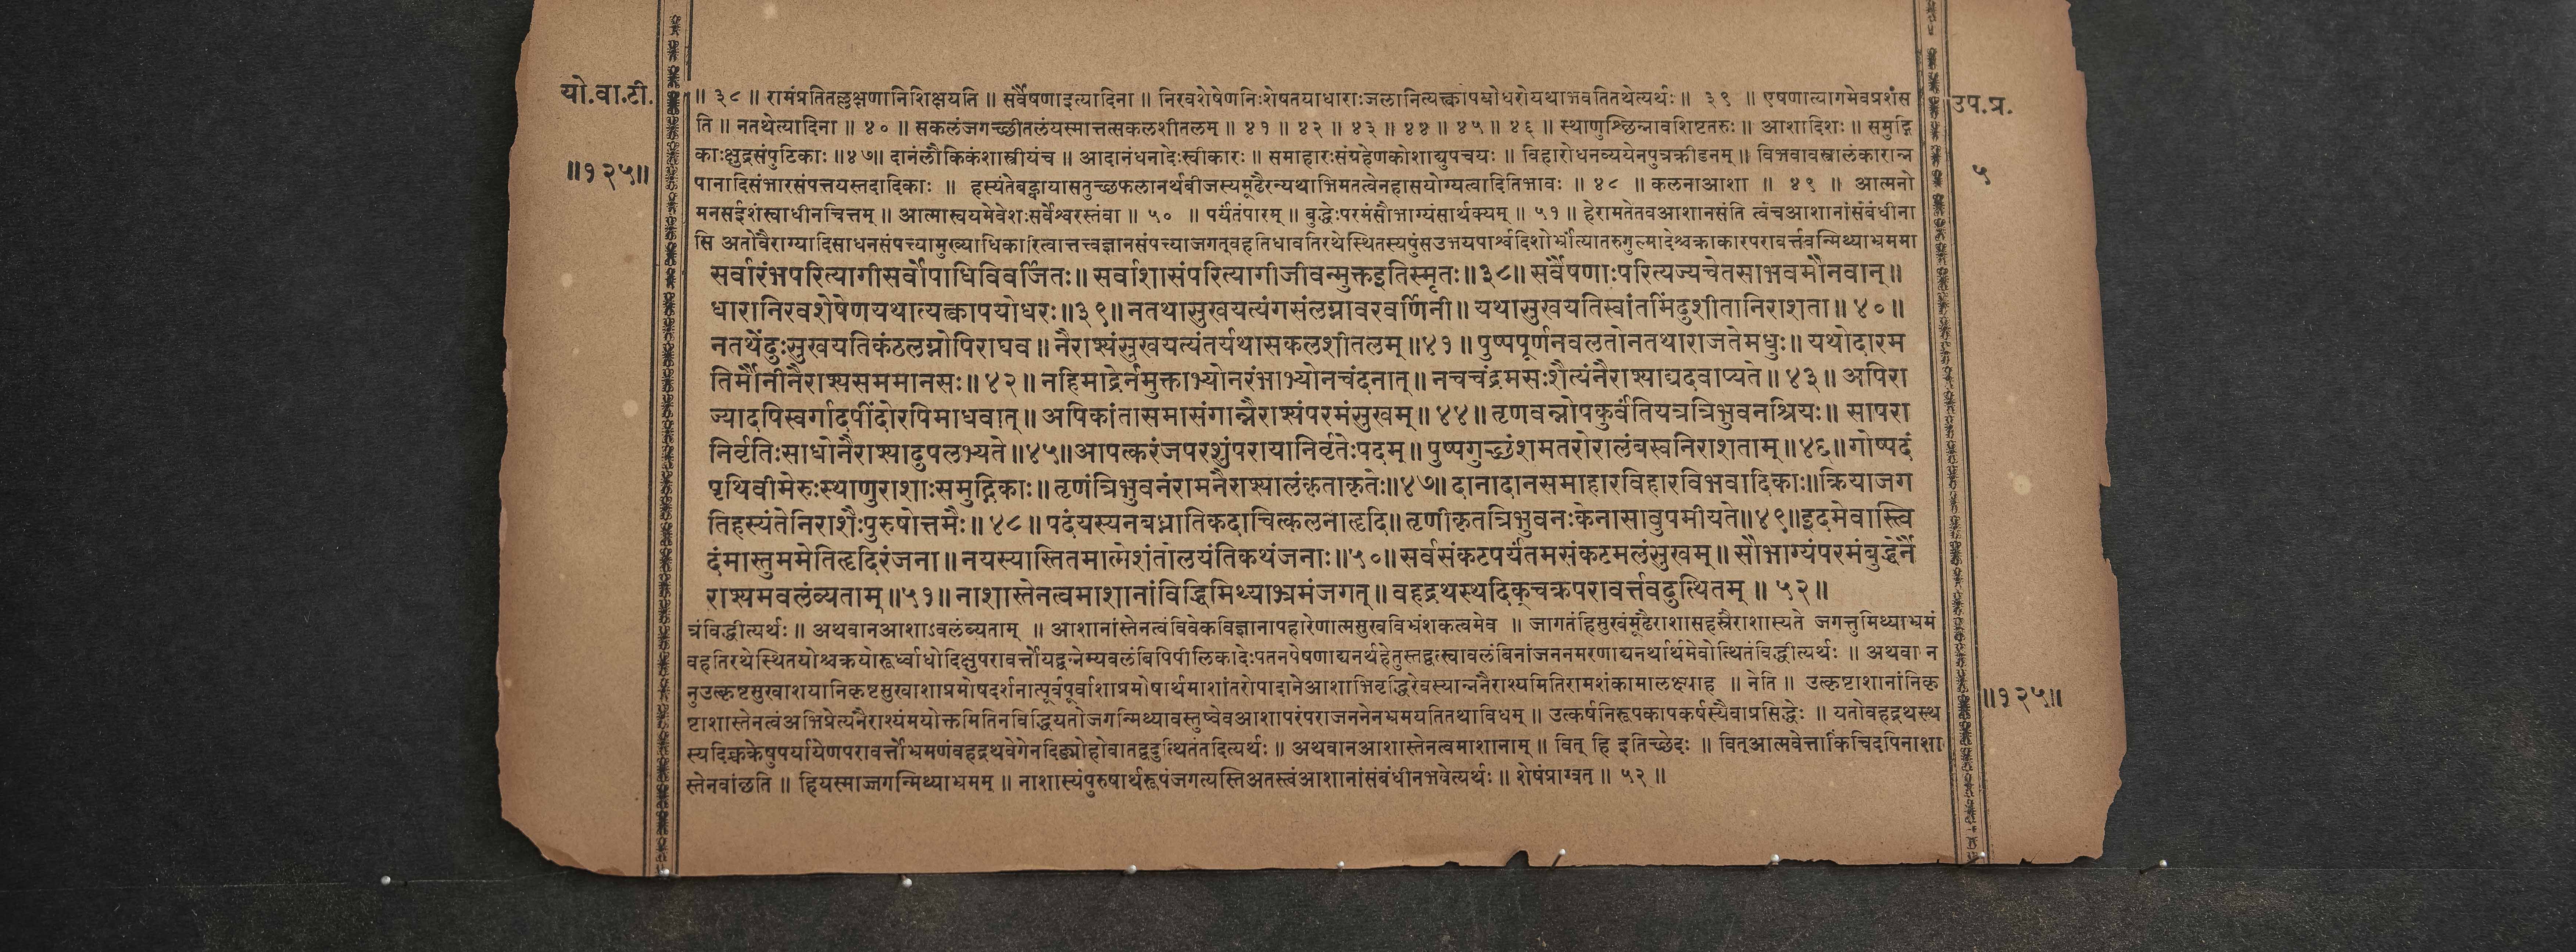 यो.वा.टी.
॥१२५॥
॥ ३८ ॥ रामंप्रतितल्लक्षणानिशिक्षयति ॥ सर्वैषणाइत्यादिना ॥ निरवशेषेणनिःशेषतयाधाराःजलानित्यक्त्वापयोधरोयथाभवतितथेत्यर्थः ॥ ३९ ॥ एषणात्यागमेवप्रशंस
ति ॥ नतथेत्यादिना ॥ ४० ॥ सकलंजगच्छीतलंयस्मात्तत्सकलशीतलम् ॥ ४१ ॥ ४२ ॥ ४३ ॥ ४४ ॥ ४५ ॥ ४६ ॥ स्थाणुश्छिन्नावशिष्टतरुः ॥ आशादिशः ॥ समुद्गि
काःक्षुद्रसंपुटिकाः ॥४७॥ दानंलौकिकंशास्त्रीयंच ॥ आदानंधनादेःस्वीकारः ॥ समाहारःसंग्रहेणकोशाद्युपचयः ॥ विहारोधनव्ययेनपुत्रक्रीडनम् ॥ विभवावस्त्रालंकारान्न
पानादिसंभारसंपत्तयस्तदादिकाः ॥ हस्यंतेबह्वायासतुच्छफलानर्थबीजस्यमूढैरन्यथाभिमतत्वेनहासयोग्यत्वादितिभावः ॥ ४८ ॥ कलनाआशा ॥ ४९ ॥ आत्मनो
मनसईशंस्वाधीनचित्तम् ॥ आत्मास्वयमेवेशःसर्वेश्वरस्तंवा ॥ ५० ॥ पर्यंतंपारम् ॥ बुद्धेःपरमंसौभाग्यंसार्थक्यम् ॥ ५१ ॥ हेरामतेतवआशानसंति त्वंचआशानांसंबंधीना
सि अतोवैराग्यादिसाधनसंपत्त्यामुख्याधिकारित्वात्तत्त्वज्ञानसंपत्त्याजगत्वहतिधावतिरथेस्थितस्यपुंसउभयपार्श्वदिशोर्भ्रांत्यातरुगुल्मादेश्चक्राकारपरावर्त्तवन्मिथ्याभ्रममा
सर्वारंभपरित्यागीसर्वोपाधिविवर्जितः ॥ सर्वाशासंपरित्यागीजीवन्मुक्तइतिस्मृतः ॥३८॥ सर्वैषणाःपरित्यज्यचेतसाभवमौनवान् ॥
धारानिरवशेषेणयथात्यक्त्वापयोधरः ॥३९॥ नतथासुखयत्यंगसंलग्नावरवर्णिनी ॥ यथासुखयतिस्वांतमिंदुशीतानिराशता ॥ ४० ॥
नतथेंदुःसुखयतिकंठलग्नोपिराघव ॥ नैराश्यंसुखयत्यंतर्यथासकलशीतलम् ॥४१॥ पुष्पपूर्णनवलतोनतथाराजतेमधुः ॥ यथोदारम
तिर्मौनीनैराश्यसममानसः ॥ ४२ ॥ नहिमाद्रेर्नमुक्ताभ्योनरंभाभ्योनचंदनात् ॥ नचचंद्रमसःशैत्यंनैराश्याद्यदवाप्यते ॥ ४३ ॥ अपिरा
ज्यादपिस्वर्गादपींदोरपिमाधवात् ॥ अपिकांतासमासंगान्नैराश्यंपरमंसुखम् ॥ ४४ ॥ तृणवन्नोपकुर्वंतियत्रत्रिभुवनश्रियः ॥ सापरा
निर्वृतिःसाधोनैराश्यादुपलभ्यते ॥४५॥ आपत्करंजपरशुंपरायानिर्वृतेःपदम् ॥ पुष्पगुच्छंशमतरोरालंबस्वनिराशताम् ॥४६॥ गोष्पदं
पृथिवीमेरुःस्थाणुराशाःसमुद्गिकाः ॥ तृणंत्रिभुवनंरामनैराश्यालंकृताकृतेः ॥४७॥ दानादानसमाहारविहारविभवादिकाः ॥ क्रियाजग
तिहस्यंतेनिराशैःपुरुषोत्तमैः ॥ ४८ ॥ पदंयस्यनबध्नातिकदाचित्कलनाहृदि ॥ तृणीकृतत्रिभुवनःकेनासावुपमीयते ॥४९॥ इदमेवास्त्वि
दंमास्तुममेतिहृदिरंजना ॥ नयस्यास्तितमात्मेशंतोलयंतिकथंजनाः ॥५०॥ सर्वसंकटपर्यंतमसंकटमलंसुखम् ॥ सौभाग्यंपरमंबुद्धेर्नै
राश्यमवलंब्यताम् ॥५१॥ नाशास्तेनत्वमाशानांविद्धिमिथ्याभ्रमंजगत् ॥ वहद्रथस्थदिक्चक्रपरावर्त्तवदुत्थितम् ॥ ५२ ॥
त्रंविद्धीत्यर्थः ॥ अथवानआशाऽवलंब्यताम् ॥ आशानांस्तेनत्वंविवेकविज्ञानापहारेणात्मसुखविभ्रंशकत्वमेव ॥ जागतंहिसुखंमूढैराशासहस्रैराशास्यते जगत्तुमिथ्याभ्रमं
वहतिरथेस्थितयोश्चक्रयोरूर्ध्वाधोदिक्षुपरावर्त्तोयद्वन्नेम्यवलंबिपिपीलिकादेःपतनपेषणाद्यनर्थहेतुस्तद्वत्स्वावलंबिनांजननमरणाद्यनर्थार्थमेवोत्थितंविद्धीत्यर्थः ॥ अथवा न
नुउत्कृष्टसुखाशयानिकृष्टसुखाशाप्रमोषदर्शनात्पूर्वपूर्वाशाप्रमोषार्थमाशांतरोपादानेआशाभिवृद्धिरेवस्यान्ननैराश्यमितिरामशंकामालक्ष्याह ॥ नेति ॥ उत्कृष्टाशानांनिकृ
ष्टाशास्तेनत्वंअभिप्रेत्यनैराश्यंमयोक्तमितिनविद्धियतोजगन्मिथ्यावस्तुष्वेवआशापरंपराजननेनभ्रमयतितथाविधम् ॥ उत्कर्षनिरूपकापकर्षस्यैवाप्रसिद्धेः ॥ यतोवहद्रथस्थ
स्यदिक्चक्रेषुपर्यायेणपरावर्त्तोभ्रमणंवहद्रथवेगेनदिङ्मोहोवातद्वदुत्थितंतदित्यर्थः ॥ अथवानआशास्तेनत्वमाशानाम् ॥ वित् हि इतिच्छेदः ॥ वित्आत्मवेत्ताकिंचिदपिनाशा
स्तेनवांछति ॥ हियस्माज्जगन्मिथ्याभ्रमम् ॥ नाशास्यंपुरुषार्थरूपंजगत्यस्तिअतस्त्वंआशानांसंबंधीनभवेत्यर्थः ॥ शेषंप्राग्वत् ॥ ५२ ॥
उप.प्र.
५
॥१२५॥